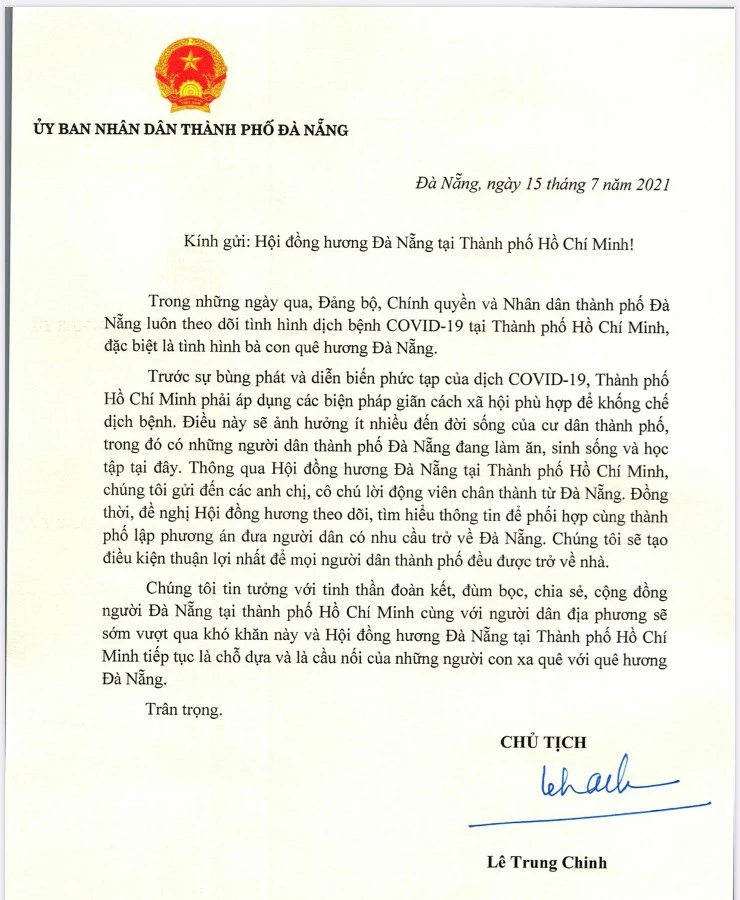 ỦY BAN NHÂN DÂN THÀNH PHỐ ĐÀ NẴNG
Đà Nẵng, ngày 15 tháng 7 năm 2021
Kính gửi: Hội đồng hương Đà Nẵng tại Thành phố Hồ Chí Minh!
Trong những ngày qua, Đảng bộ, Chính quyền và Nhân dân thành phố Đà
Nẵng luôn theo dõi tình hình dịch bệnh COVID-19 tại Thành phố Hồ Chí Minh,
đặc biệt là tình hình bà con quê hương Đà Nẵng.
Trước sự bùng phát và diễn biến phức tạp của dịch COVID-19, Thành phố
Hồ Chí Minh phải áp dụng các biện pháp giãn cách xã hội phù hợp để khống chế
dịch bệnh. Điều này sẽ ảnh hưởng ít nhiều đến đời sống của cư dân thành phố,
trong đó có những người dân thành phố Đà Nẵng đang làm ăn, sinh sống và học
tập tại đây. Thông qua Hội đồng hương Đà Nẵng tại Thành phố Hồ Chí Minh,
chúng tôi gửi đến các anh chị, cô chú lời động viên chân thành từ Đà Nẵng. Đồng
thời, đề nghị Hội đồng hương theo dõi, tìm hiểu thông tin để phối hợp cùng thành
phố lập phương án đưa người dân có nhu cầu trở về Đà Nẵng. Chúng tôi sẽ tạo
điều kiện thuận lợi nhất để mọi người dân thành phố đều được trở về nhà.
Chúng tôi tin tưởng với tinh thần đoàn kết, đùm bọc, chia sẻ, cộng đồng
người Đà Nẵng tại thành phố Hồ Chí Minh cùng với người dân địa phương sẽ
sớm vượt qua khó khăn này và Hội đồng hương Đà Nẵng tại Thành phố Hồ Chí
Minh tiếp tục là chỗ dựa và là cầu nối của những người con xa quê với quê hương
Đà Nẵng.
Trân trọng.
CHỦ TỊCH
Lê Trung Chinh